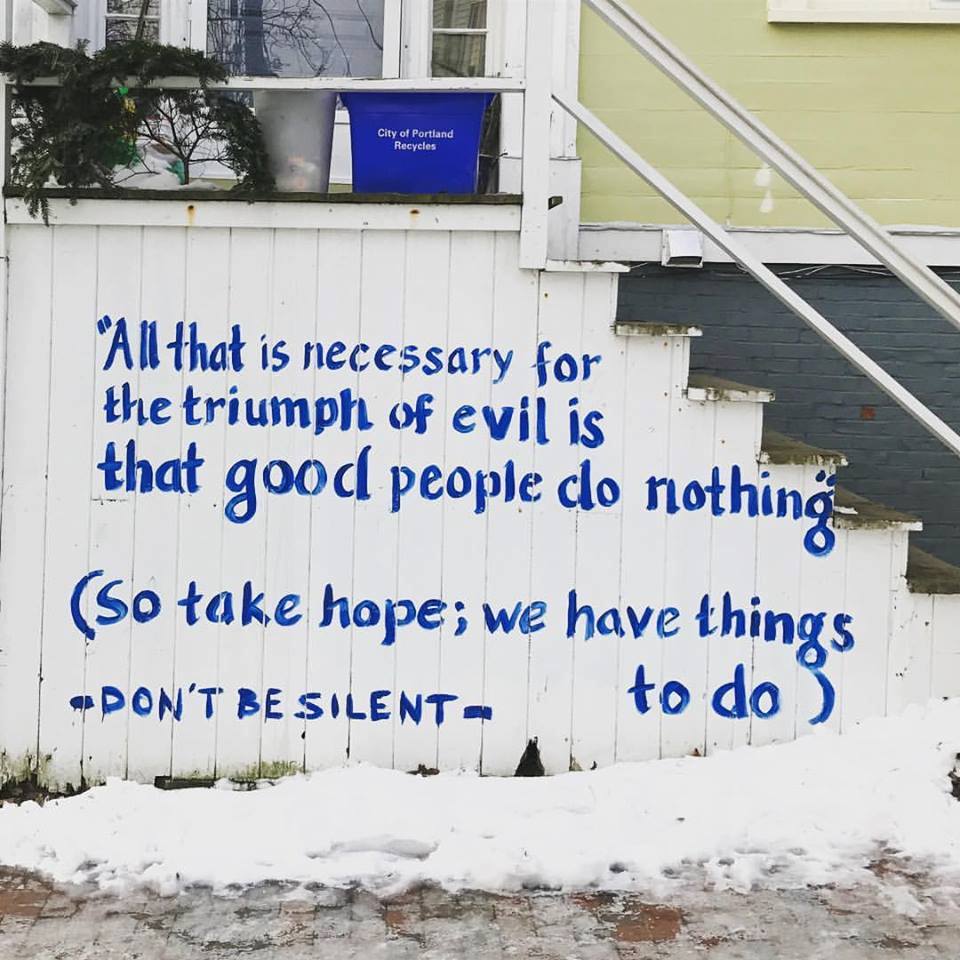 City of Portland
Recycles
"All that is necessary for
the triumph of evil is
that good people do nothing"
(So take hope; we have things
to do)
-DON'T BE SILENT-